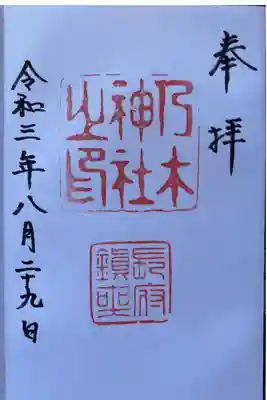 奉拝
乃木
神社
之印
長府
鎮坐
令和三年八月二十九日